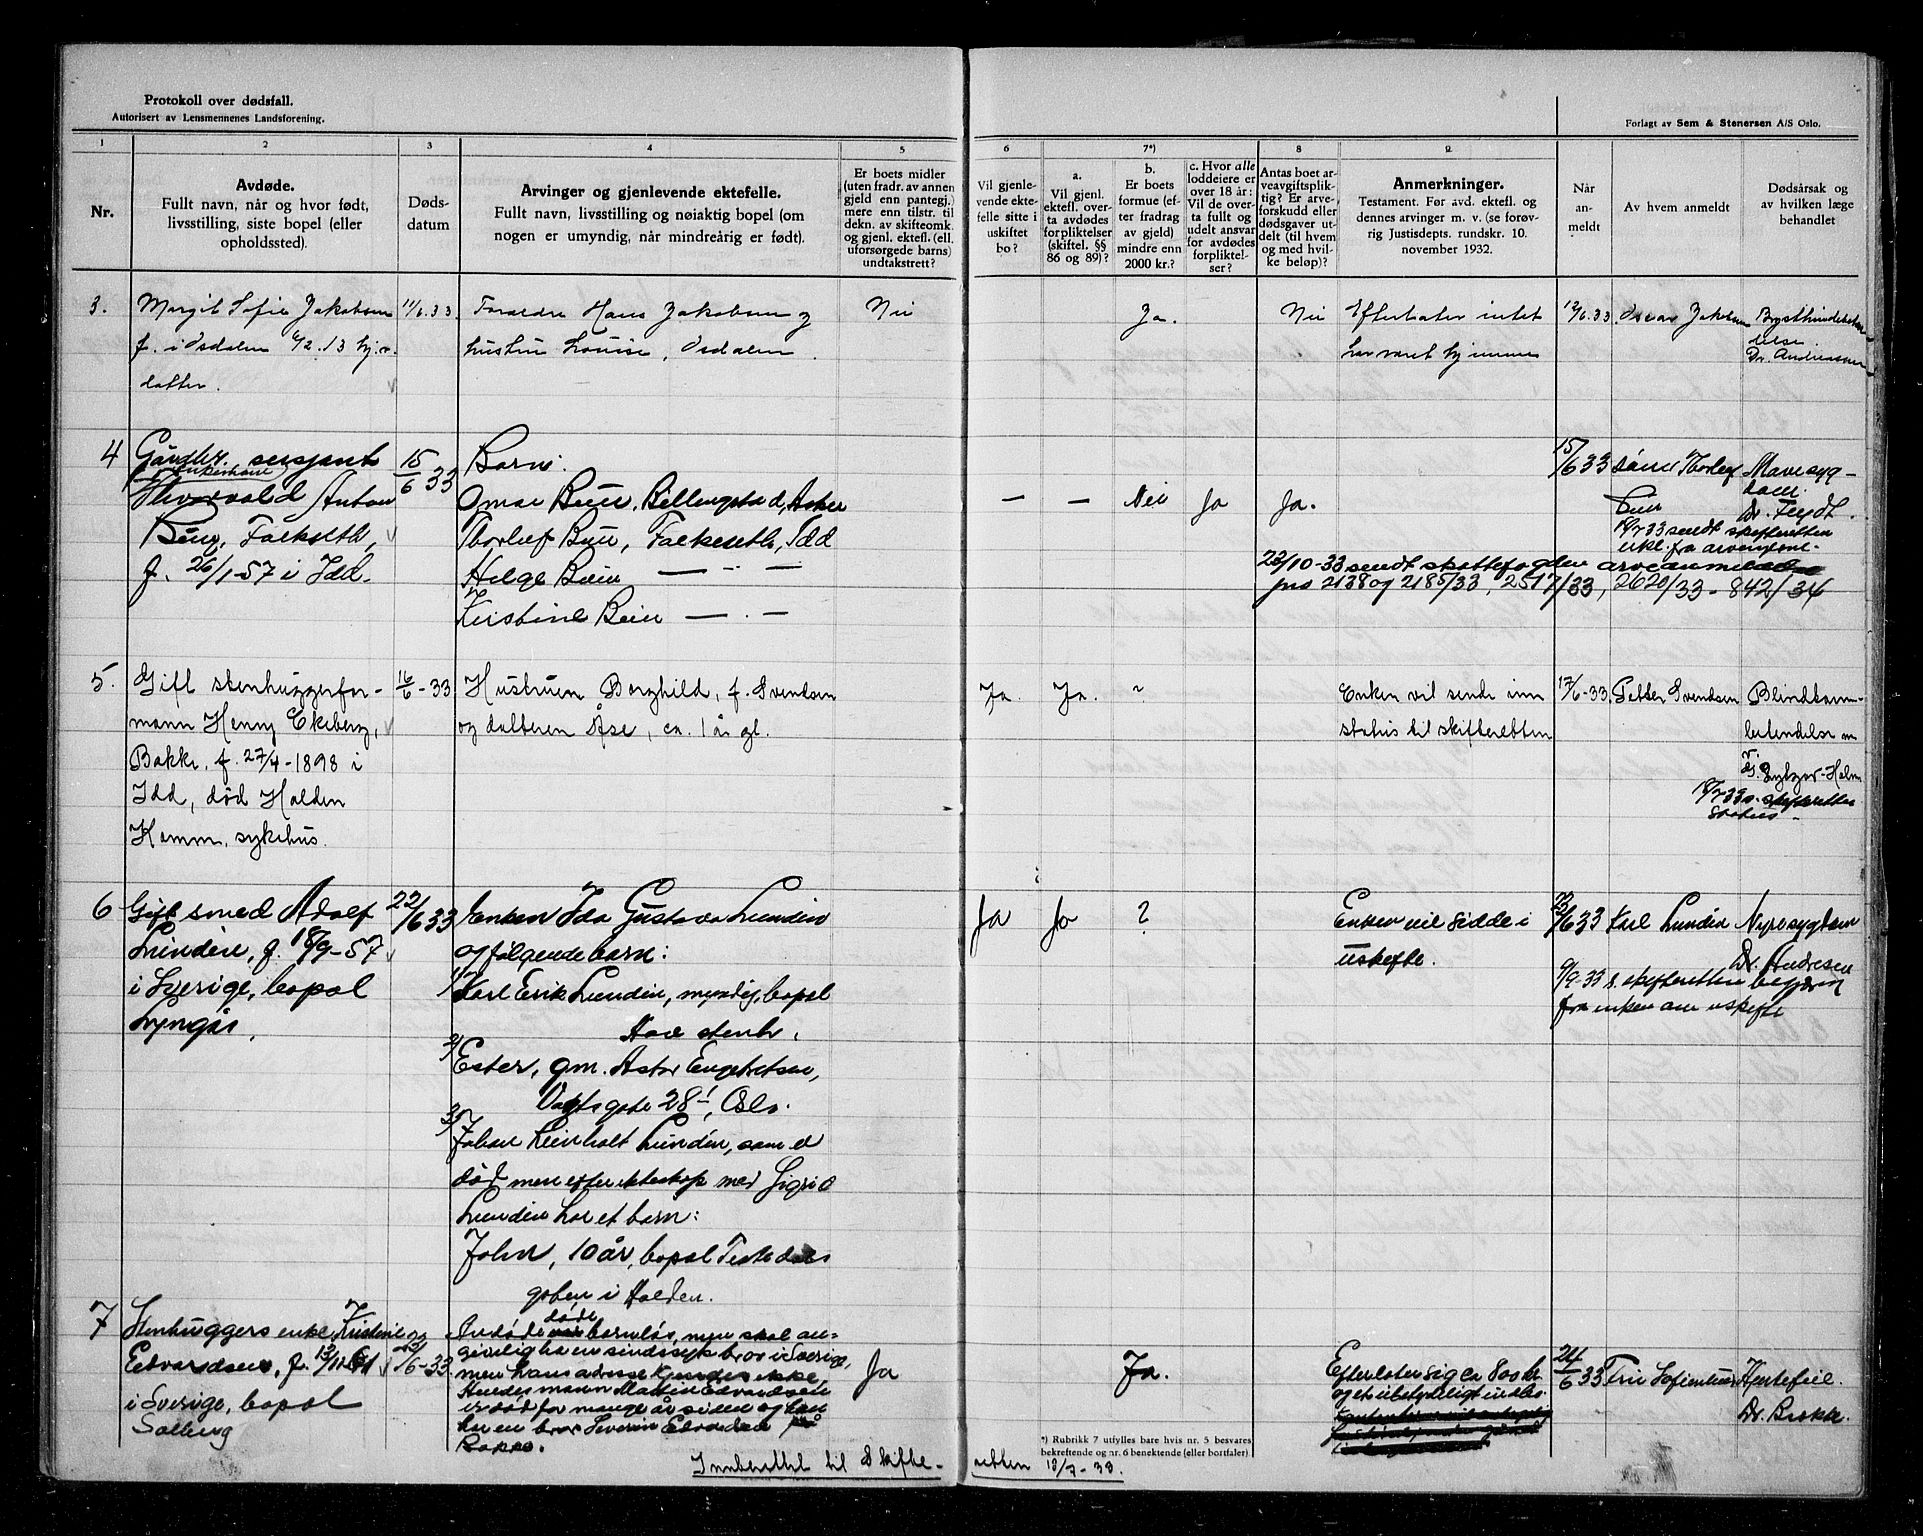 Protokoll over dødsfall.
Autorisert av Lensmennenes Landsforening.
Forlagt av Sem & Stenersen A/S Oslo.
1
Nr.
2
Avdøde.
Fullt navn, når og hvor født,
livsstilling, siste bopel (eller
opholdssted).
3
Døds-
datum
4
Arvinger og gjenlevende ektefelle.
Fullt navn, livsstilling og nøiaktig bopel (om
nogen er umyndig, når mindreårig er født).
5
Er boets midler
(uten fradr. av annen
gjeld enn pantegj.)
mere enn tilstr. til
dekn. av skifteomk.
og gjenl. ektef. (ell.
uforsørgede barns)
undtakstrett?
6
Vil gjenle-
vende ekte-
felle sitte i
uskiftet
bo?
7*)
a.
Vil gjenl.
ektefl. over-
ta avdødes
forpliktelser
(skiftel. §§
86 og 89)?
b.
Er boets
formue (ef-
ter fradrag
av gjeld)
mindre enn
2000 kr.?
c. Hvor alle
loddeiere er
over 18 år:
Vil de over-
ta fullt og
udelt ansvar
for avdødes
forpliktel-
ser?
8
Antas boet ar-
veavgiftsplik-
tig? Er arve-
forskudd eller
dødsgaver ut-
delt (til hvem
og med hvil-
ke beløp)?
9
Anmerkninger.
Testament. Før avd. ektefl. og
dennes arvinger m. v. (se forøv-
rig Justisdepts. rundskr. 10.
november 1932.
Når
an-
meldt
Av hvem anmeldt
Dødsårsak og
av hvilken læge
behandlet
3.
Margit Sofie Jakobsen
f. i Isdalen 6/2.13 hj.v.
datter.
11/6.33.
Foreldre Hans Jakobsen og
hustru Louise, Osdalen.
Nei
Ja.
Nei
Efterlater intet
har været hjemme
12/6.33.
Oskar Jakobsen
Dr. Andreassen
4
Gårdbr. sersjant
Thorvald Anton
f. 26/1-57 i Idd.
15/6 33
Barn:
Omar Buer, Billingstad, Asker
Thorleif Buer, Falkeseth, Idd
Helge Buer — " —
Kristine Buer — " —
— — Nei Ja Ja.
15/6 33
sønn Thorleif
Buer
Mavesyg-
dom.
Dr. Feydt.
18/7 33 sendt skifteretten
erkl. fra arvingene.
23/10-33 sendt skattefogden arveanmeldelse
jns 2138 og 2185/33, 2517/33, 2620/33 - 842/34
5.
Gift stenhuggerfor-
mann Henry Ekeberg,
Bakke, f. 27/4-1898 i
Idd, død Halden
Komm. sykehus.
16/6-33
Hustruen Borghild, f. Svendsen
og datteren Åse, ca. 1 år gl.
Ja. Ja. ?
Enken vil sende inn
status til skifteretten
17/6-33.
Petter Svendsen
Blindtarm-
betendelse
18/7 33 s. skifteretten
Status -
6
Gift smed Adolf
Lundin, f. 18/9-57
i Sverige, bopel
Lyngås.
22/6 33
Enken Ida Gustava Lundin
og følgende barn:
1/ Karl Erik Lundin, myndig, bopel
Hov stenbr.
2/ Ester, gm. Astor Engebretsen,
Vogts gate 28 I, Oslo.
3/ Johan Reinholt Lundin, som er
død men efter ekteskap med Sigrid
Lundin har et barn:
John, 10 år, bopel Tistedals
gaten i Halden.
Ja Ja ?
Enken vil sidde i
uskifte.
23/6 33
Karl Lundin
Nyresygdom
Dr. Andresen
9/9-33 s. skifteretten begjæring
fra enken om uskifte
7
Stenhuggers enke Kristine
Edvardsen, f. 13/11-61
i Sverige, bopel
Solberg
23/6-33
Avdøde døde barnløs, men skal an-
givelig ha en sindssyk bror i Sverige,
men hans adresse kjendes ikke,
Hendes mann Martin Edvardsen
er død for mange år siden og han
har en bror Severin Edvardsen på
Bakke.
Ja
Ja.
Efterlater sig ca 800 kr
og et ubetydeligt indbo
24/6 33
Dr. Brekke.
Hjertefeil.
*) Rubrikk 7 utfylles bare hvis nr. 5 besvares
bekreftende og nr. 6 benektende (eller bortfaler)
Innberettet til Skifte-
retten 12/7-33.